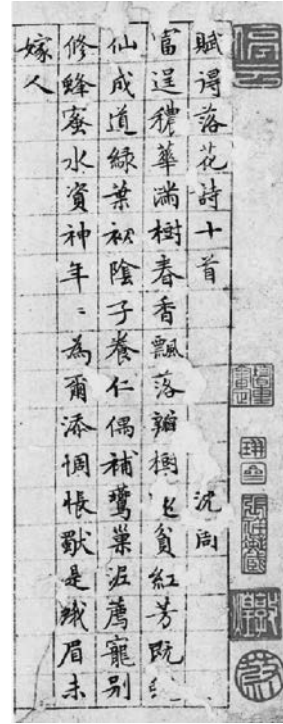 賦得落花詩十首 沈周
富逞穠華滿樹春香飄落瓣樹貧紅芳既
仙成道綠葉初陰子養仁偶補鶯巢泥薦寵别
修蜂蜜水資神年〻為爾添惆悵是蛾眉未
嫁人